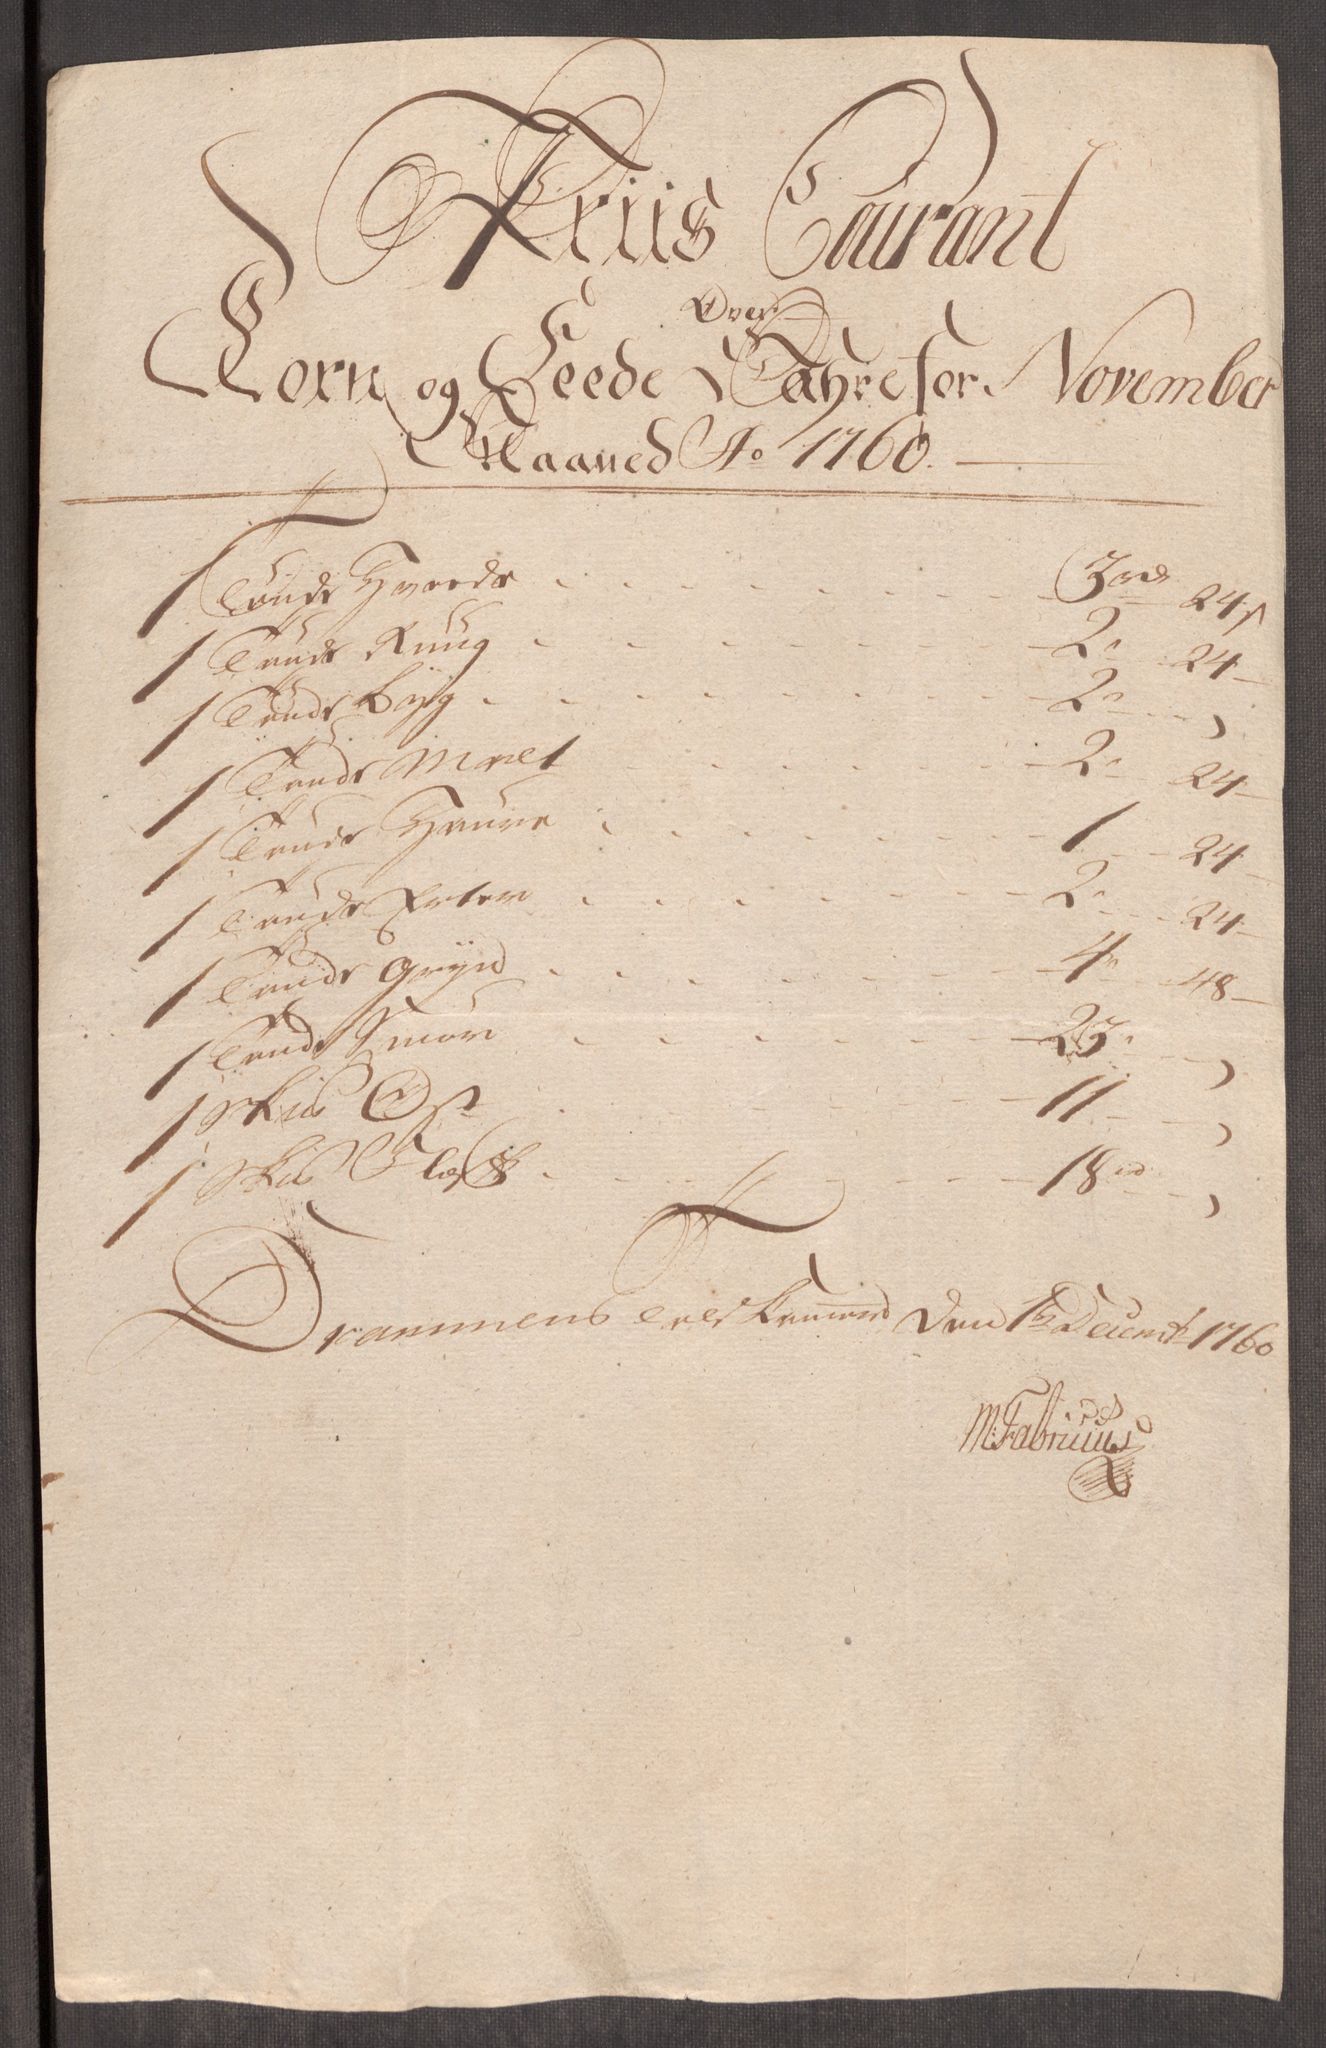 Priis Courant
Over
Corn og Feede Vahre for November
Maaned Ao 1760.
1 Tønde Hvede - - - 3 rd 24 s
1 Tønde Rùùg - - - 2 " 24 -
1 Tønde Byg - - - 2 " - "
1 Tønde Malt - - - 2 " 24 -
1 Tønde Haùre - - - 1 - 24 -
1 Tønde Erter - - - 2 " 24 -
1 Tønde Gryn - - - 4 " 48 -
1 Tønde Smør - - - 23 " - "
1 Skùd Ost - - - 11 - "
1 Skùd Flæsk - - - 18 " - "
Drammens den 1te Decembr 1760
M: Fabricius